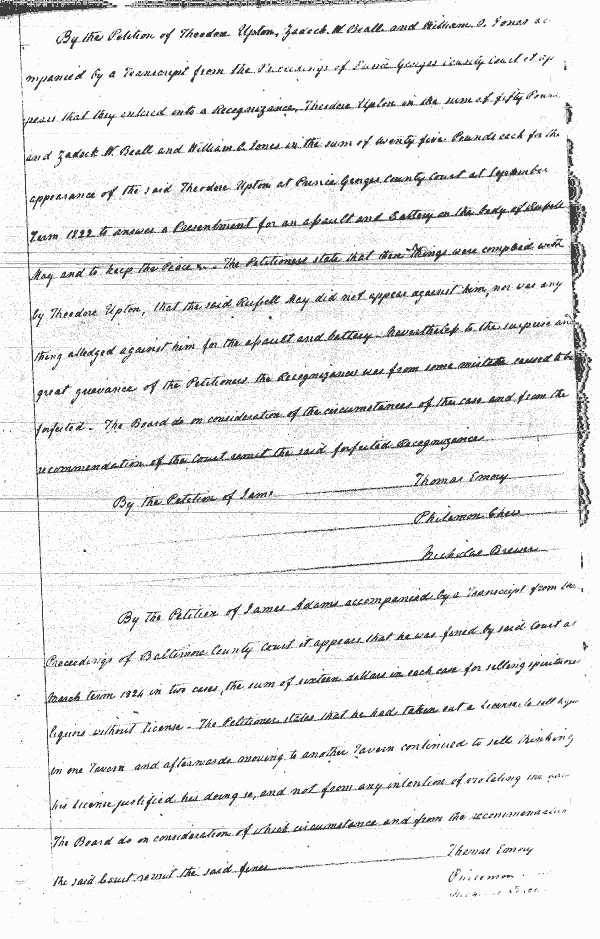 By the Petition of Theodore Upton, Zadock W. Beall and William O. Jones ac
mpanied by a Transcript from the Proceedings of Prince Georges County Court it ap
pears that they entered into a Recognizance, Theodore Upton in the sum of fifty Pounds
and Zadock W. Beall and William O. Jones in the sum of twenty five Pounds each for the
appearance of the said Theodore Upton at Prince Georges County Court at September
Term 1822 to answer a Presentment for an assault and Battery on the body of Russell
May and to keep the Peace &. The Petitioners state that these things were complied with
by Theodore Upton, that the said Russell May did not appear against him, nor was any
thing alledged against him for the assault and battery. Nevertheless to the surprise and
great grievance of the Petitioners the Recognizances was from some mistake caused to be
forfeited. The Board do on consideration of the circumstances of the case and from the
recommendation of the Court remit the said forfeited Recognizances
By the Petition of Jame
Thomas Emory
Philemon Chew
Nicholas Brewer
By the Petition of James Adams accompanied by a Transcript from the
Proceedings of Baltimore County Court it appears that he was fined by said Court at
March term 1824 in two cases, the sum of sixteen dollars in each case for selling spirituous
liquors without license. The Petitioner states that he had taken out a License to sell liquor
in one Tavern and afterwards moving to another Tavern continued to sell thinking
his License justified his doing so, and not from any intention of violating the
The Board do on consideration of which circumstance and from the recommendation
the said Court remit the said fines
Thomas Emory
Philemon